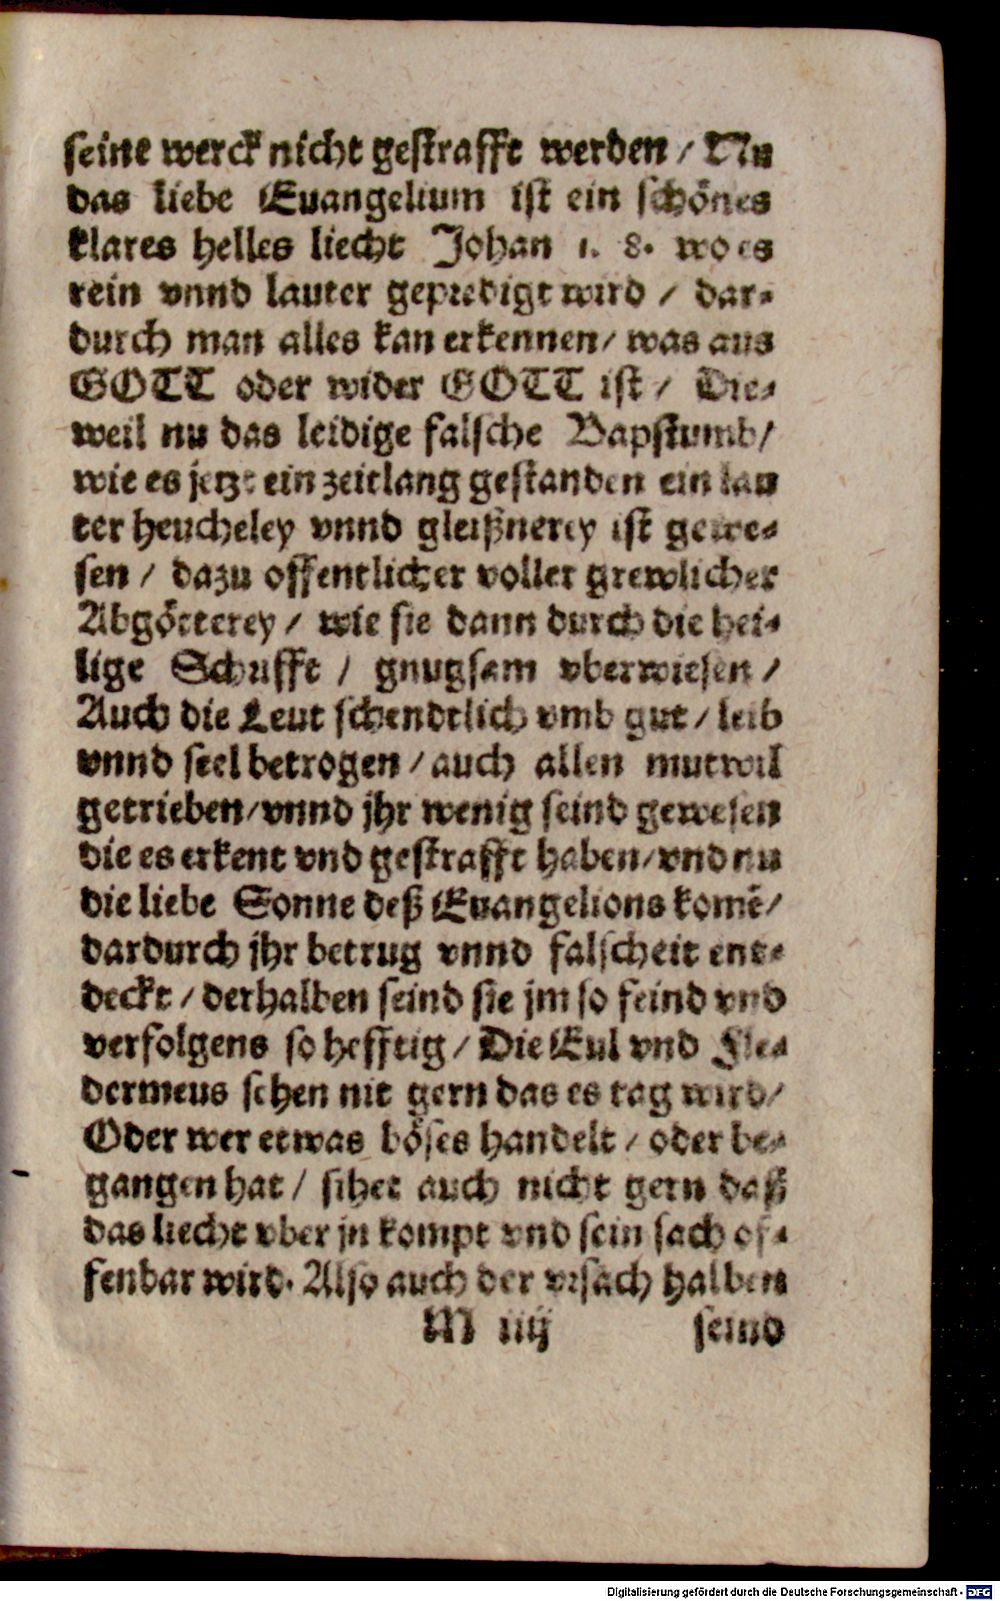 seine werck nicht gestrafft werden / Nu
das liebe Euangelium ist ein schönes
klares helles liecht Johan 1. 8. wo es
rein vnnd lauter geprediget wird / dar-
durch man alles kan erkennen / was aus
GOTT oder wider GOTT ist / Die-
weil nu das leidige falsche Bapstumb /
wie es jetzt ein zeitlang gestanden ein lau
ter heucheley vnnd gleißnerey ist gewe-
sen / dazu offentlicher voller grewlicher
Abgötterey / wie sie dann durch die hei-
lige Schrifft / gnugsam vberwiesen /
Auch die Leut schendtlich vmb gut / leib
vnnd seel betrogen / auch allen mutwil
getrieben / vnnd jhr wenig seind gewesen
die es erkent vnd gestrafft haben / vnd nu
die liebe Sonne deß Euangelions komẽ /
dardurch jhr betrug vnnd falscheit ent-
deckt / derhalben seind sie jm so feind vnd
verfolgens so hefftig / Die Eul vnd Fle-
dermeus sehen nit gern das es tag wird /
Oder wer etwas böses handelt / oder be-
gangen hat / sihet auch nicht gern daß
das liecht vber jn kompt vnd sein sach of-
fenbar wird. Also auch der vrsach halben
M iiij seind
Digitalisierung gefördert durch die Deutsche Forschungsgemeinschaft - DFG